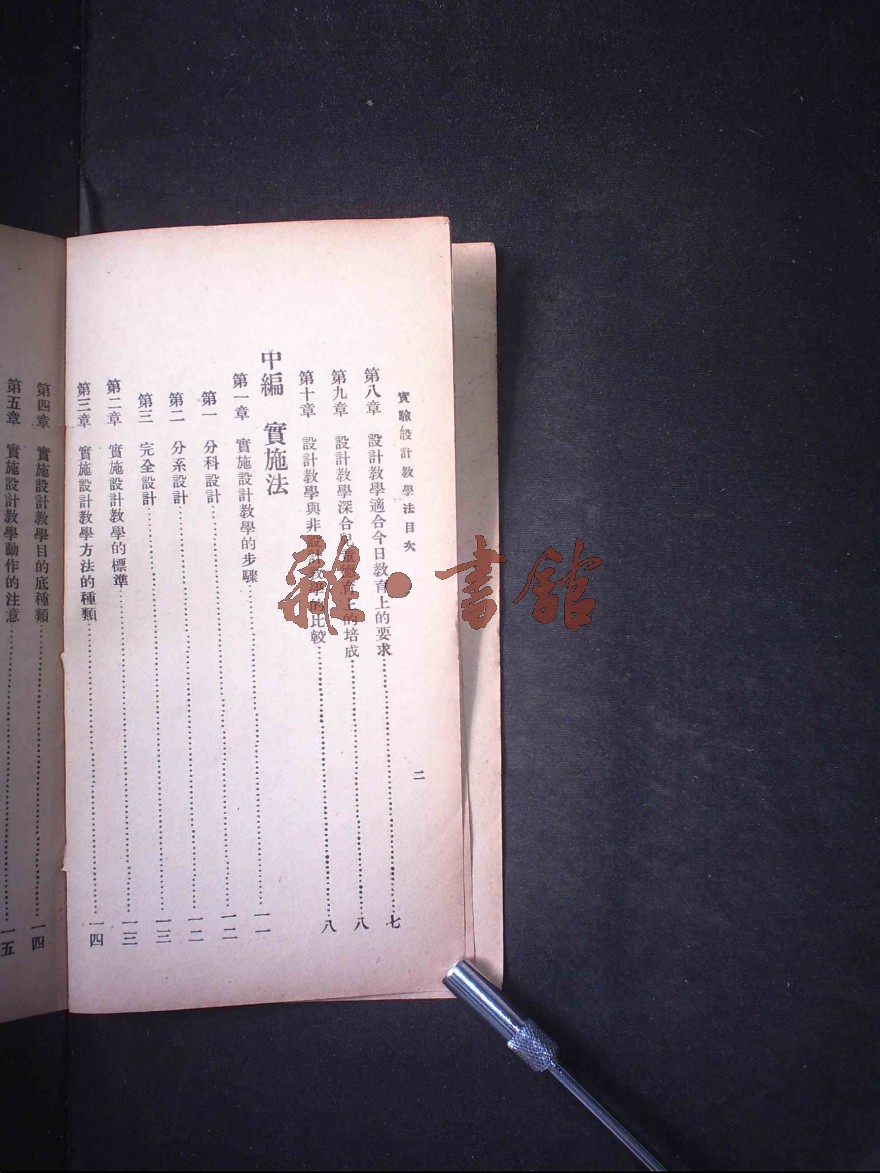 實驗設計教學法目次
二
第八章 設計教學適合今日教育上的要求……七
第九章 設計教學深合兒童育上的培成……八
第十章 設計教學與非設計教學的比較……八
中編 實施法
第一章 實施設計教學的步驟……一一
第一 分科設計……一二
第二 分系設計……一二
第三 完全設計……一三
第二章 實施設計教學的標準……一三
第三章 實施設計教學方法的種類……一四
第四章 實施設計教學目的底種類……一四
第五章 實施設計教學動作的注意……一五
雜·書館